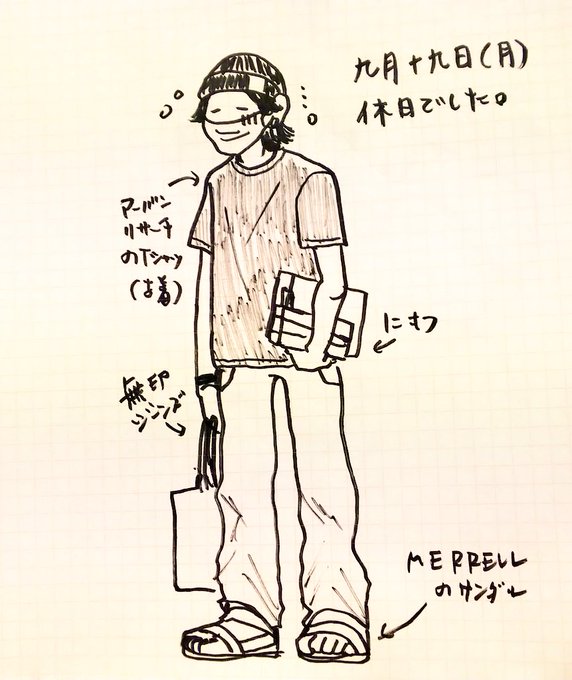 九月十九日(月)
休日でした。
アーバン
リサーチ
のTシャツ
(古着)
にもつ
無印
ジーンズ
MERRELL
のサンダル